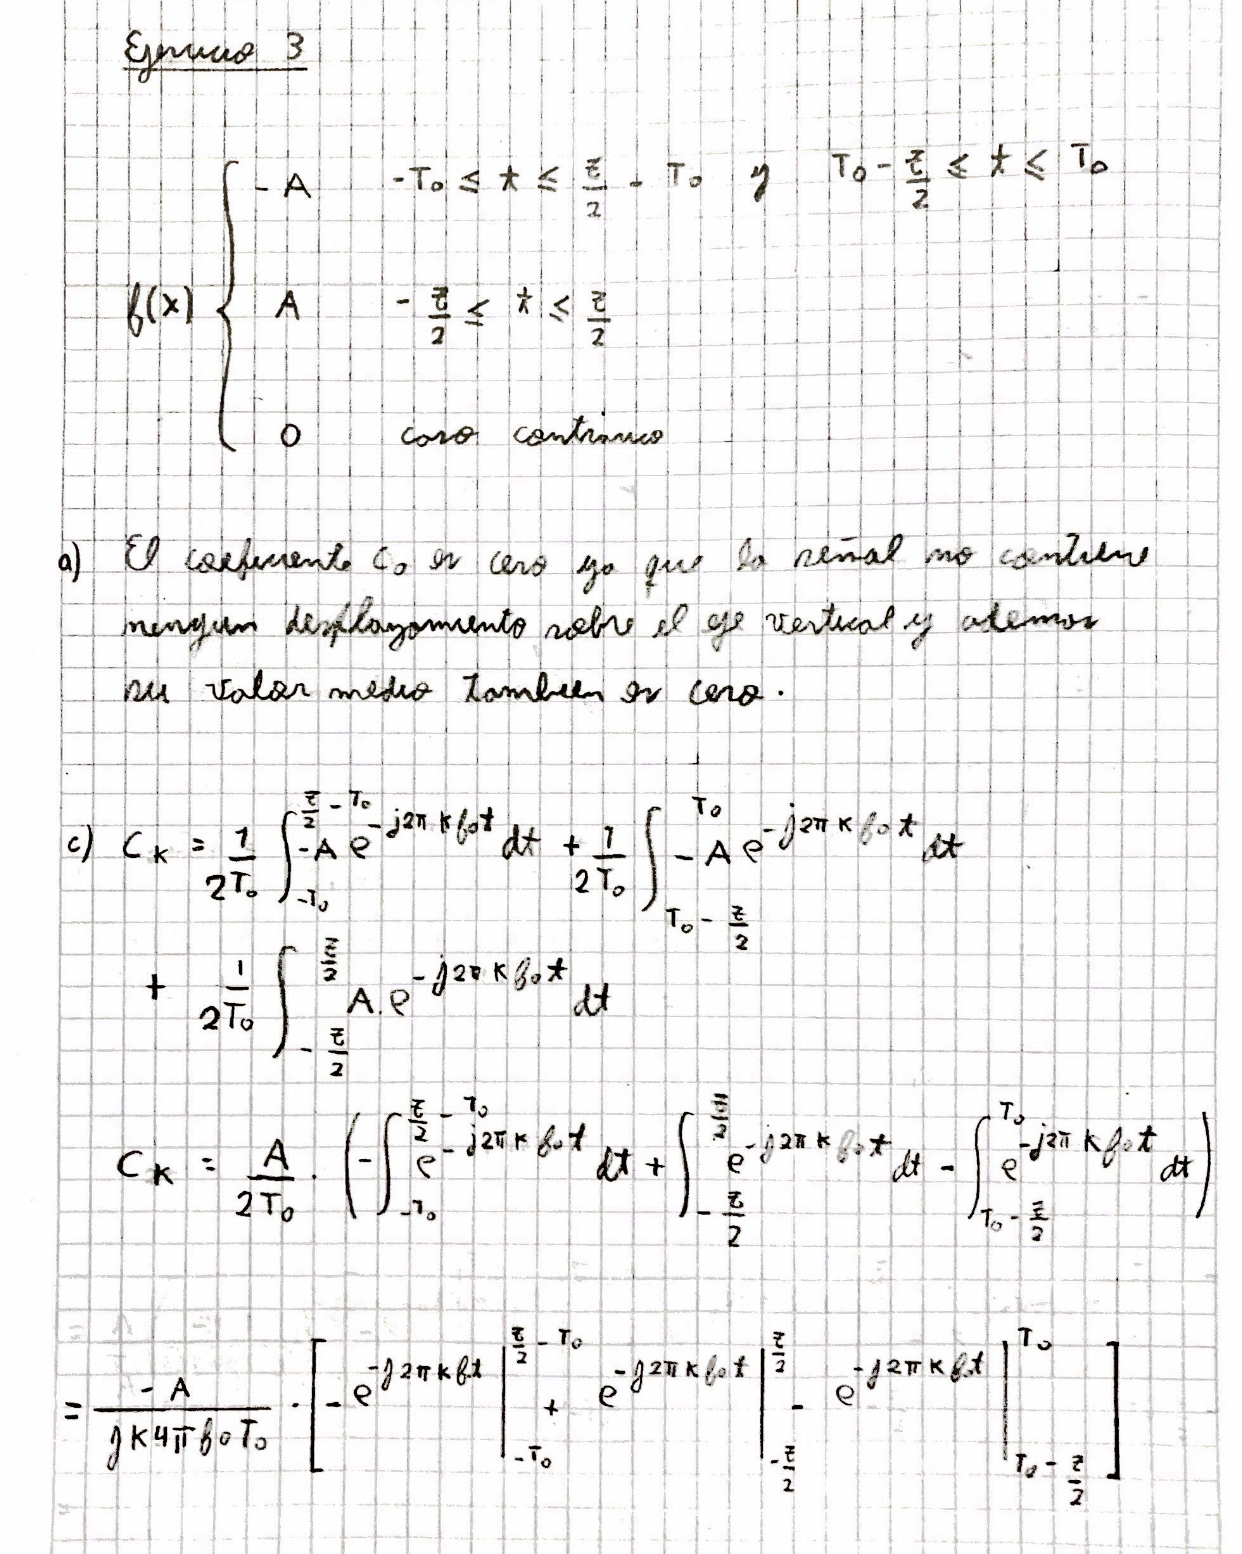 Ejercicio 3
-A    -T₀ ≤ t ≤ τ/2 - T₀  y  T₀ - τ/2 ≤ t ≤ T₀
f(x) {  A    -τ/2 ≤ t ≤ τ/2
0    caso contrario
a) El coeficiente C₀ es cero ya que la señal no contiene
ningun desplazamiento sobre el eje vertical y ademas
su valor medio tambien es cero.
c) C_K = 1/(2T₀) ∫_{-T₀}^{τ/2 - T₀} -A e^{-j2πKf₀t} dt + 1/(2T₀) ∫_{T₀ - τ/2}^{T₀} -A e^{-j2πKf₀t} dt
+ 1/(2T₀) ∫_{-τ/2}^{τ/2} A. e^{-j2πKf₀t} dt
C_K = A/(2T₀) . (-∫_{-T₀}^{τ/2 - T₀} e^{-j2πKf₀t} dt + ∫_{-τ/2}^{τ/2} e^{-j2πKf₀t} dt - ∫_{T₀ - τ/2}^{T₀} e^{-j2πKf₀t} dt)
= -A/(jK4πf₀T₀) · [-e^{-j2πKf₀t} |_{-T₀}^{τ/2 - T₀} + e^{-j2πKf₀t} |_{-τ/2}^{τ/2} - e^{-j2πKf₀t} |_{T₀ - τ/2}^{T₀}]